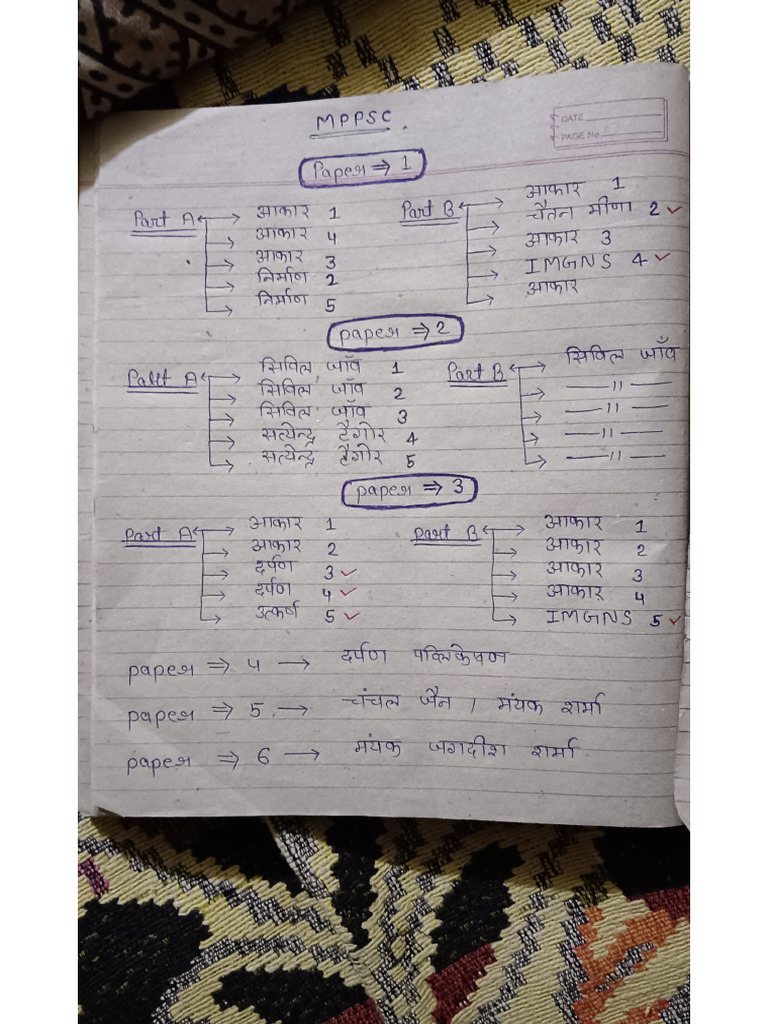 MPPSC.
DATE
PAGE No
Paper ⇒ 1
Part A → आकार 1
→ आकार 4
→ आकार 3
→ निर्माण 2
→ निर्माण 5
Part B → आकार 1
→ चैतन मीणा 2 ✓
→ आकार 3
→ IMGNS 4 ✓
→ आकार
paper ⇒ 2
Part A → सिविल जॉब 1
→ सिविल जॉब 2
→ सिविल जॉब 3
→ सत्येन्द्र टैगोर 4
→ सत्येन्द्र टैगोर 5
Part B → सिविल जॉब
→ —〃—
→ —〃—
→ —〃—
→ —〃—
paper ⇒ 3
Part A → आकार 1
→ आकार 2
→ दर्पण 3 ✓
→ दर्पण 4 ✓
→ उत्कर्ष 5 ✓
Part B → आकार 1
→ आकार 2
→ आकार 3
→ आकार 4
→ IMGNS 5 ✓
paper ⇒ 4 → दर्पण पब्लिकेषण
paper ⇒ 5 → चंचल जैन / मंयक शर्मा
paper ⇒ 6 → मंयक जगदीश शर्मा